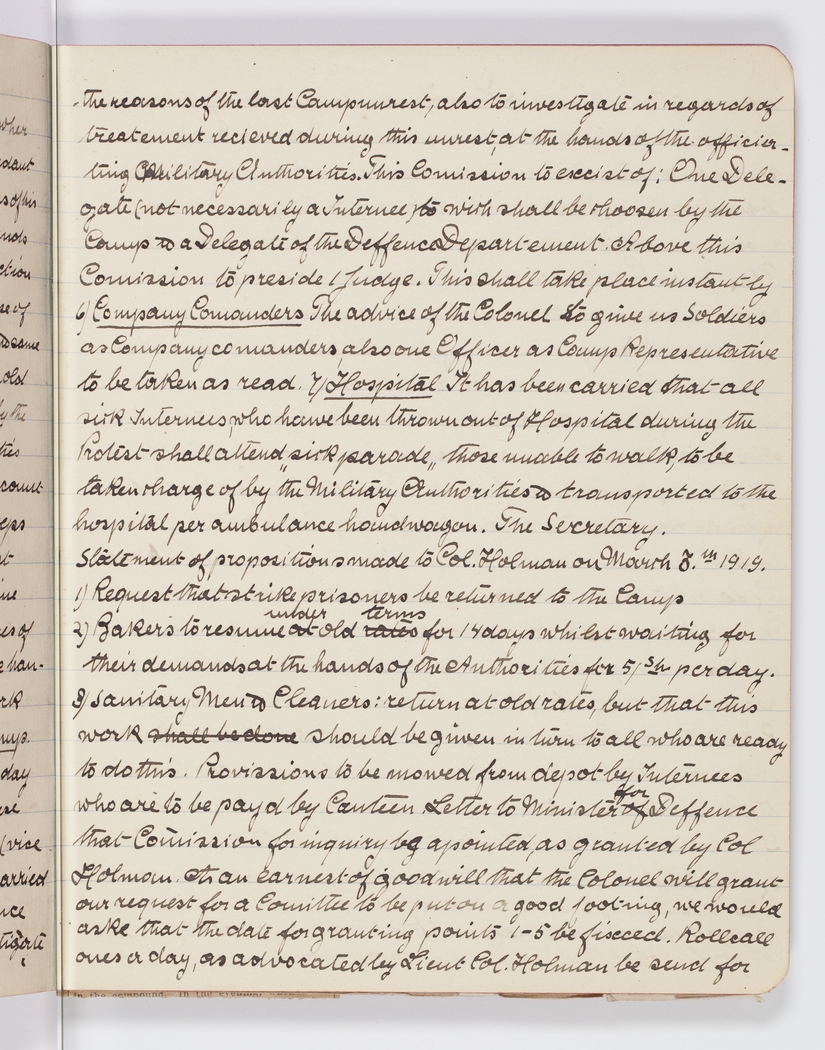 the reasons of the last Campunrest, also to investigate in regards of
treatement recieved during this unrest, at the hands of the officier-
ting Military Authorities. This Comission to excist of: One Dele-
gate (not necessarily a Internee) to wich shall be choosen by the
Camp & a Delegate of the Deffence Departement. Above this
Comission to preside 1 Judge. This shall take place instantly
6) Company Comanders The advice of the Colonel to give us Soldiers
as Company comanders, also one Officer as Camp Representative
to be taken as read. 7) Hospital It has been carried that all
sick Internees, who hawe been thrown out of Hospital during the
Protest shall attend „sick parade„ those unable to walk, to be
taken charge of by the Military Authorities & transported to the
hospital per ambulance handwagon. The Secretary.
Statement of propositions made to Col. Holman on March 8.th 1919.
1) Request that strike prisoners be returned to the Camp
2) Bakers to resume at under old rates terms for 14 days whilst waiting for
their demands at the hands of the Authorities for 5/ Sh per day.
3) Sanitary Men & Cleaners: return at old rates, but that this
work shall be done should be given in turn to all who are ready
to do this. Provissions to be mowed from depot by Internees
who are to be payd by Canteen. Letter to Minister of for Deffence
that Comission for inquiry be apointed, as granted by Col
Holman. As an earnest of goodwill that the Colonel will grant
our request for a Comittee to be put on a good footing, we would
aske that the date for granting points 1-5 be fixced. Rollcall
ones er day, as advocated by Lieut Col. Holman be send for
wher
dant
s of his
ction
se of
& same
old
by the
ties
count
eps
es of
han-
rk
day
(vice
arried
nce
tigate